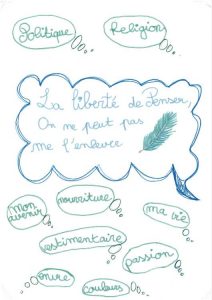 Politique
Religion
La liberté de Penser,
On ne peut pas
me l'enlever
nourriture
mon
avenir
ma vie
vestimentaire
passion
envie
couleurs